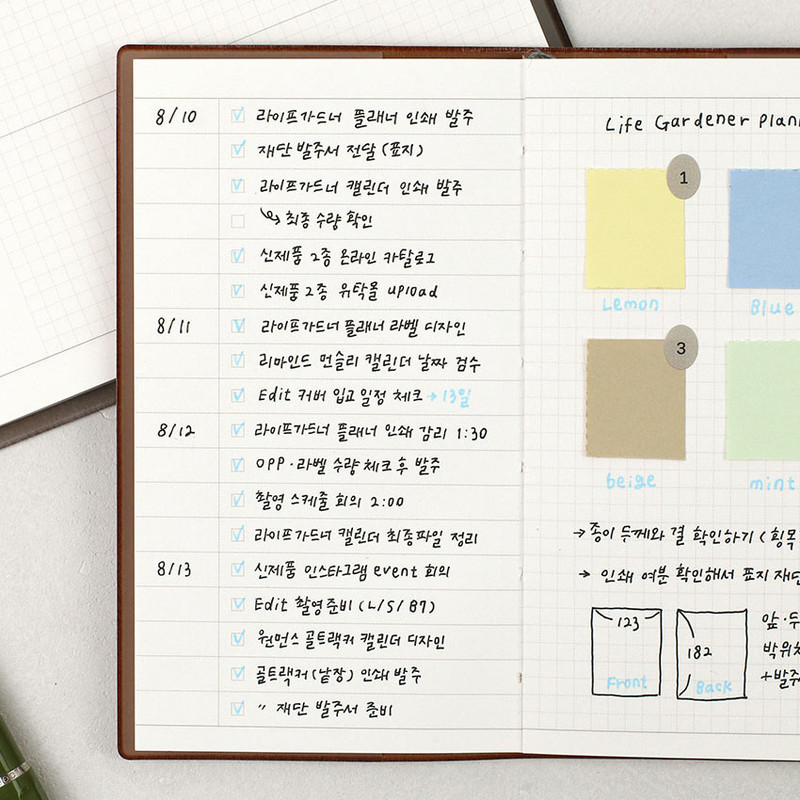 8/10 라이프가드너 플래너 인쇄 발주
재단 발주서 전달 (표지)
라이프가드너 캘린더 인쇄 발주
최종 수량 확인
신제품 2종 온라인 카탈로그
신제품 2종 위탁몰 upload
8/11 라이프가드너 플래너 라벨 디자인
리마인드 먼슬리 캘린더 날짜 검수
Edit 커버 입고 일정 체크 → 13일
8/12 라이프가드너 플래너 인쇄 감리 1:30
OPP · 라벨 수량 체크 후 발주
촬영 스케줄 회의 2:00
라이프가드너 캘린더 최종파일 정리
8/13 신제품 인스타그램 event 회의
Edit 촬영준비 (L/S/B7)
원먼스 골트랙커 캘린더 디자인
골트랙커 (낱장) 인쇄 발주
〃 재단 발주서 준비
Life Gardener Plan
1
Lemon Blue
3
beige mint
→ 종이 두께와 결 확인하기 (횡목
→ 인쇄 여분 확인해서 표지 재단
123
182
Front Back
앞·뒤
박위치
+발주